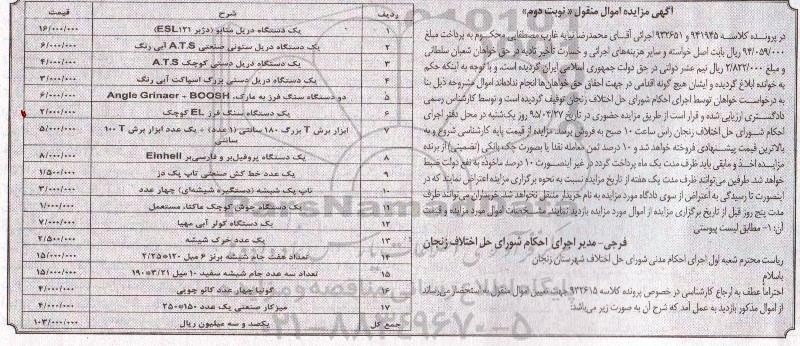 آگهی مزایده اموال منقول « نوبت دوم »
در پرونده کلاسه ۹۴۱۹۴۵ و ۹۳۲۶۵۱ اجرائی آقای محمدرضا نیابه غایب مصطفایی محکوم به پرداخت مبلغ
۹۴/۰۵۹/۰۰۰ ریال بابت اصل خواسته و سایر هزینه‌های اجرائی و خسارت تأخیر تأدیه در حق خواهان شعبان سلطانی
و مبلغ ۲/۸۲۲/۰۰۰ ریال نیم عشر دولتی در حق دولت جمهوری اسلامی ایران گردیده است. و با توجه به اینکه حکم
به خوانده ابلاغ گردیده و ایشان هیچ گونه اقدامی در جهت احقاق حق خواهان‌ها انجام نداده‌اند اموال مشروحه ذیل بنا
به درخواست خواهان توسط اجرای احکام شورای حل اختلاف زنجان توقیف گردیده است و توسط کارشناس رسمی
دادگستری ارزیابی شده و قرار است از طریق مزایده حضوری در تاریخ ۹۵/۰۲/۲۷ روز یک‌شنبه در محل دفتر اجرای
احکام شورای حل اختلاف زنجان راس ساعت ۱۰ صبح به فروش برسد. مزایده از قیمت پایه کارشناسی شروع و به
بالاترین قیمت پیشنهادی فروخته خواهد شد و ۱۰ درصد ثمن معامله نقدا یا بصورت چک بانکی (تضمینی) از برنده
مزایده اخذ و مابقی باید ظرف مدت یک ماه پرداخت گردد در غیر اینصورت ۱۰ درصد ماخوذه به نفع دولت ضبط
خواهد شد. طرفین می‌توانند ظرف مدت یک هفته از تاریخ مزایده نسبت به نحوه برگزاری مزایده اعتراض نمایند که در
اینصورت تا رسیدگی به اعتراض از سوی دادگاه مورد مزایده به نام خریدار منتقل نخواهد شد. خریداران می‌توانند ظرف
مدت پنج روز قبل از تاریخ برگزاری مزایده از اموال مورد مزایده بازدید نمایند. مشخصات اموال مورد مزایده و قیمت
آن: ۱- مطابق لیست پیوستی
فرجی- مدیر اجرای احکام شورای حل اختلاف زنجان
ریاست محترم شعبه اول اجرای احکام مدنی شورای حل اختلاف شهرستان زنجان
باسلام
احتراماً عطف به ارجاع کارشناسی در خصوص پرونده کلاسه ۹۳۲۶۱۵ جهت تعیین اموال منقول به استحضار می‌رساند
از اموال مذکور بازدید به عمل آمد که شرح آن به صورت زیر می‌باشد:
ردیف شرح قیمت
۱ یک دستگاه دریل متابو (دژبر ESL۱۲۱) ۱۶/۰۰۰/۰۰۰
۲ یک دستگاه دریل ستونی صنعتی A.T.S آبی رنگ ۶/۰۰۰/۰۰۰
۳ یک دستگاه دریل دستی کوچک A.T.S ۴/۰۰۰/۰۰۰
۴ یک دستگاه دریل دستی بزرگ اسپاکت آبی رنگ ۳/۰۰۰/۰۰۰
۵ دو دستگاه سنگ فرز به مارک. Angle Grinaer - BOOSH ۶/۰۰۰/۰۰۰
۶ یک دستگاه سنگ فرز EL کوچک ۲/۰۰۰/۰۰۰
۷ ابزار برش T بزرگ ۱۸۰ سانتی (۱ عدد) + یک عدد ابزار برش T ۱۰۰ سانتی ۵/۰۰۰/۰۰۰
۸ یک دستگاه پروفیل‌بر و فارسی‌بر Einhell ۸/۰۰۰/۰۰۰
۹ یک عدد خط کش صنعی تاپ پک دز ۱/۵۰۰/۰۰۰
۱۰ تاپ پک شیشه (دستگیره شیشه‌ای) چهار عدد ۳/۰۰۰/۰۰۰
۱۱ یک دستگاه جوش کوچک ماکتا، مستعمل ۱/۰۰۰/۰۰۰
۱۲ یک دستگاه کولر آبی مهیا ۷/۰۰۰/۰۰۰
۱۳ یک عدد خرک شیشه ۲/۵۰۰/۰۰۰
۱۴ تعداد هفت جام شیشه برنز ۶ میل ۱۲۰*۲/۲۵ ۱۵/۰۰۰/۰۰۰
۱۵ تعداد سه عدد جام شیشه سفید ۱۰ میل ۳/۲۱*۱۹۰ ۱۵/۰۰۰/۰۰۰
۱۶ گونیا چهار عدد کائو چویی ۴/۰۰۰/۰۰۰
۱۷ میزکار صنعتی یک عدد ۱۵۰*۲۵۰ ۴/۰۰۰/۰۰۰
جمع کل یکصد و سه میلیون ریال ۱۰۳/۰۰۰/۰۰۰
۰۲۱-۸۸۳۴۹۶۷۰-۵